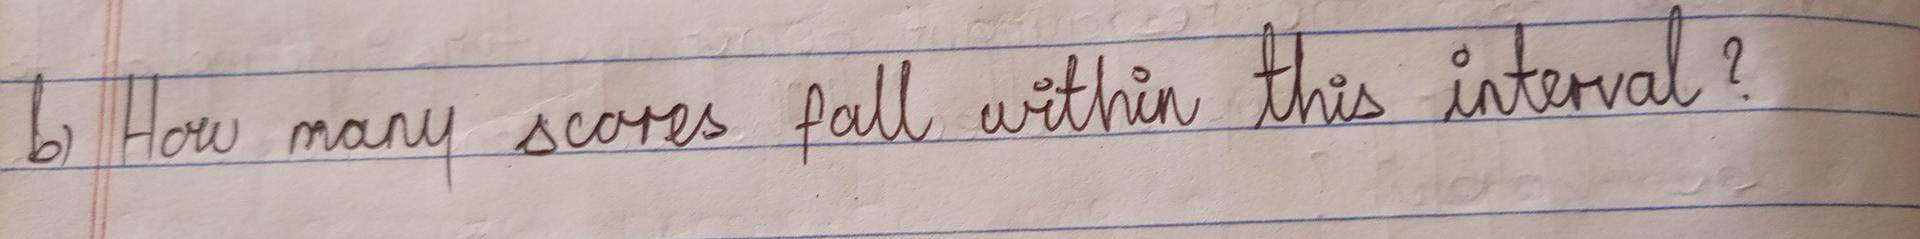 b) How many scores fall within this interval?